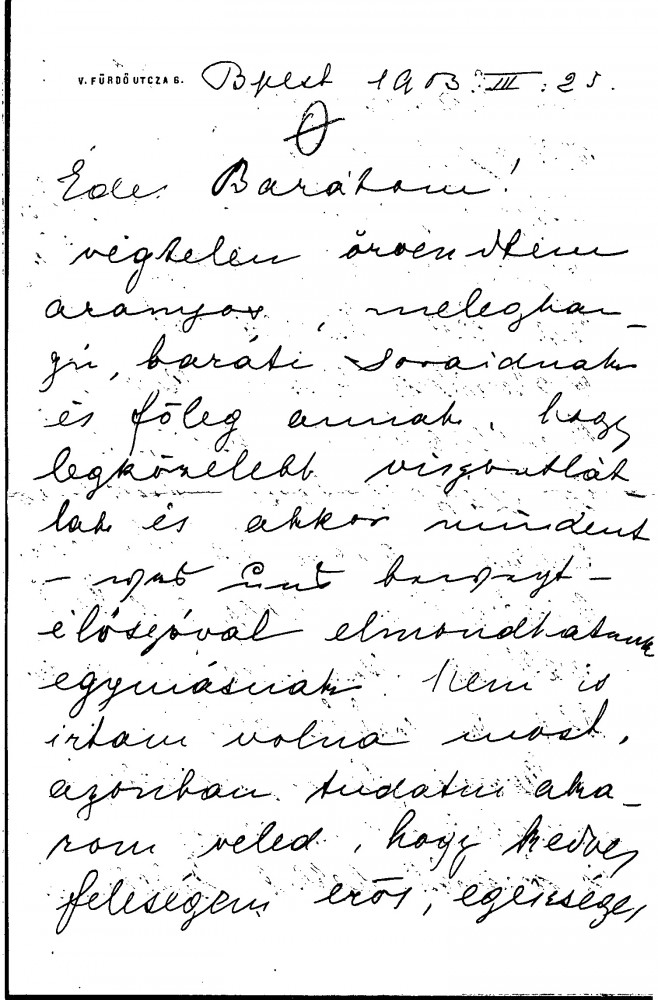 V. FÜRDŐ UTCZA 6. Bpest 1903. III. 25.
Édes Barátom!
végtelen örvendtem
aranyos, meleghan-
gú, baráti soraidnak
és főleg annak, hogy
legközelebb viszontlát-
lak és akkor mindent
-
élőszóval elmondhatunk
egymásnak. Nem is
írtam volna most,
azonban tudatni aka-
rom veled, hogy kedves
feleségem erős, egészséges